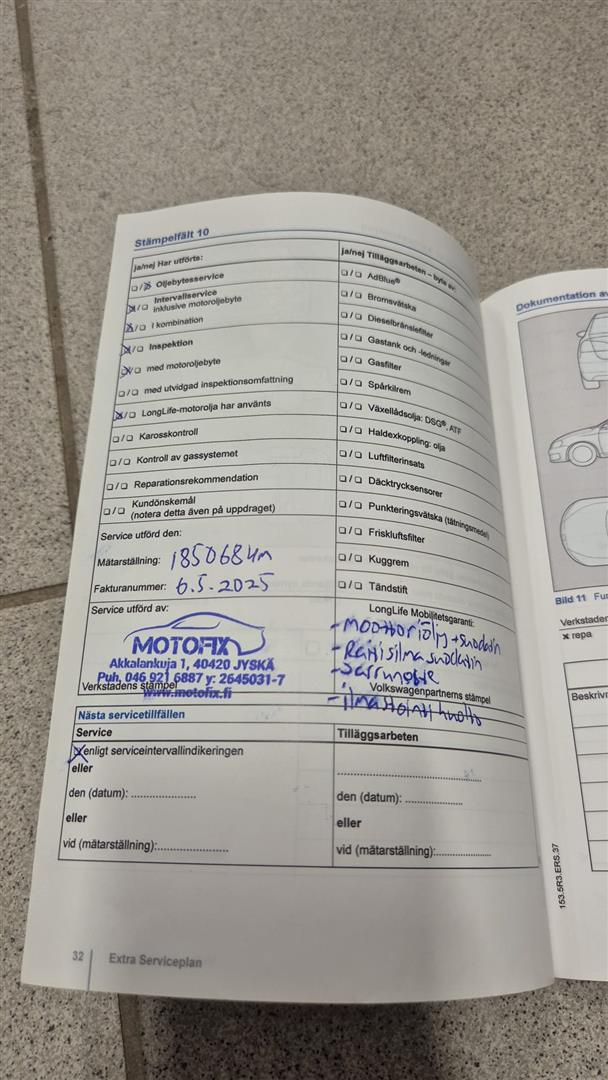 Stämpelfält 10
ja/nej Har utförts:
❏/❏ Oljebytesservice
❏/❏ Intervallservice
inklusive motoroljebyte
❏/❏ I kombination
❏/❏ Inspektion
❏/❏ med motoroljebyte
❏/❏ med utvidgad inspektionsomfattning
❏/❏ LongLife-motorolja har använts
❏/❏ Karosskontroll
❏/❏ Kontroll av gassystemet
❏/❏ Reparationsrekommendation
❏/❏ Kundönskemål
(notera detta även på uppdraget)
Service utförd den:
Mätarställning: 185068km
Fakturanummer: 6.5.2025
Service utförd av:
MOTOFIX
Akkalankuja 1, 40420 JYSKÄ
Puh. 046 921 6887 y: 2645031-7
www.motofix.fi
Verkstadens stämpel
ja/nej Tilläggsarbeten – byte av:
❏/❏ AdBlue®
❏/❏ Bromsvätska
❏/❏ Dieselbränslefilter
❏/❏ Gastank och -ledningar
❏/❏ Gasfilter
❏/❏ Spårkilrem
❏/❏ Växellådsolja: DSG®, ATF
❏/❏ Haldexkoppling: olja
❏/❏ Luftfilterinsats
❏/❏ Däcktrycksensorer
❏/❏ Punkteringsvätska (tätningsmedel)
❏/❏ Friskluftsfilter
❏/❏ Kuggrem
❏/❏ Tändstift
LongLife Mobilitetsgaranti:
- moottoriöljy + suodatin
- Raitisilmasuodatin
- Jarruneste
Volkswagenpartnerns stämpel
- ilmastointi huolto
Nästa servicetillfällen
Service
enligt serviceintervallindikeringen
eller
den (datum): ....................
eller
vid (mätarställning):.......................
Tilläggsarbeten
............................................
den (datum): ..................
eller
vid (mätarställning):..................
32 Extra Serviceplan
Dokumentation av
Bild 11
Verkstaden
× repa
153.5R3.ERS.37